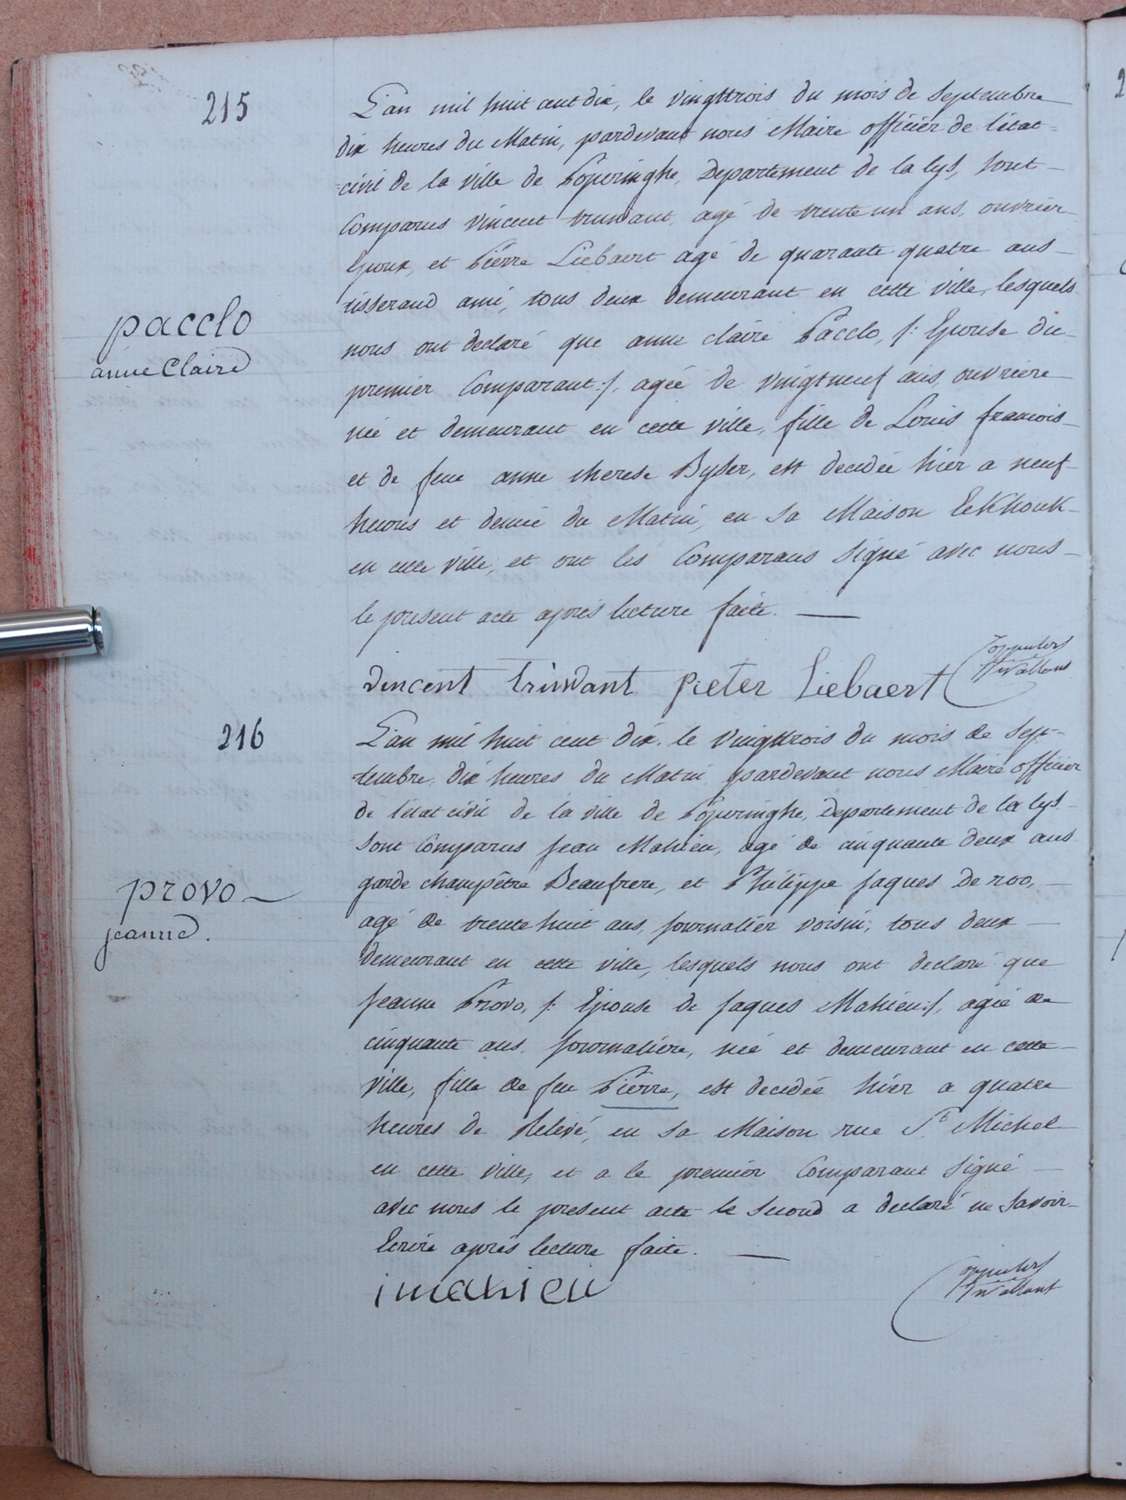 215
L'an mil huit cent dix, le vingttrois du mois de Septembre
dix heures du Matin, pardevant nous Maire officier de l'état-
civil de la ville de Poperinghe, Departement de la lys, sont
Comparus Vincent trinsant, agé de trente un ans, ouvrier
Epoux, et Pierre Liebaert agé de quarante quatre ans
tisserand ami, tous deux demeurant en cette ville, lesquels
nous ont declaré que anne claire Pacclo, /: Epouse du
premier Comparant :/, agée de vingtneuf ans, ouvriere
née et demeurant en cette ville, fille de Louis francois
et de feue anne therese Byser, est decedée hier a neuf
heures et demie du Matin, en sa Maison Eekhoek
en cette ville, et ont les Comparans signé avec nous
le present acte après lecture faite.
pacclo
anne Claire
vincent trinsant pieter Liebaert
216
L'an mil huit cent dix, le vingttrois du mois de Sept-
tembre, dix heures du Matin, pardevant nous Maire officier
de l'état civil de la ville de Poperinghe, Departement de la lys
sont Comparus Jean Mahieu, agé de cinquante deux ans
garde champêtre Beaufrere, et Philippe Jaques De roo,
agé de trente huit ans, journalier voisin, tous deux
demeurant en cette ville, lesquels nous ont declaré que
Jeanne Provo, /: Epouse de Jaques Mahieu :/, agée de
cinquante ans, journaliere, née et demeurant en cette
ville, fille de feu Pierre, est decedée hier a quatre
heures de Relevé, en sa Maison rue St Michel
en cette ville, et a le premier Comparant signé
avec nous le present acte le second a declaré ne savoir
Ecrire après lecture faite.
provo
jeanne.
j mahieu